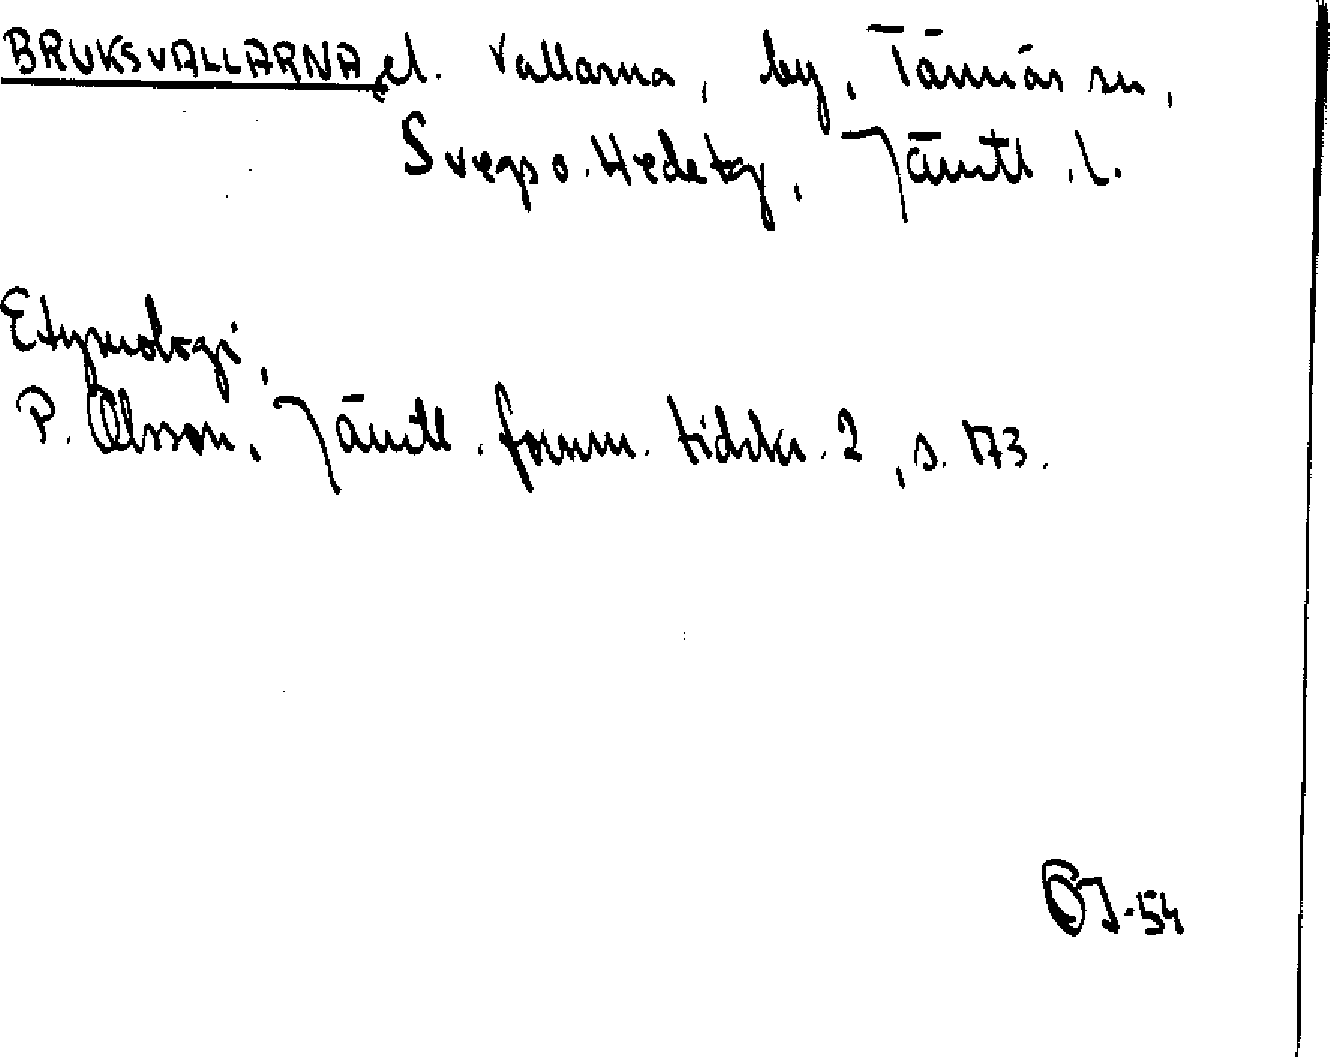 BRUKSVALLARNA, el. Vallarna, by, Tännäs sn,
Svegs o. Hede tg, Jämtl. l.
Etymologi,
P. Olsson, Jämtl. fornm. tidskr. 2, s. 173.
ÖJ-54